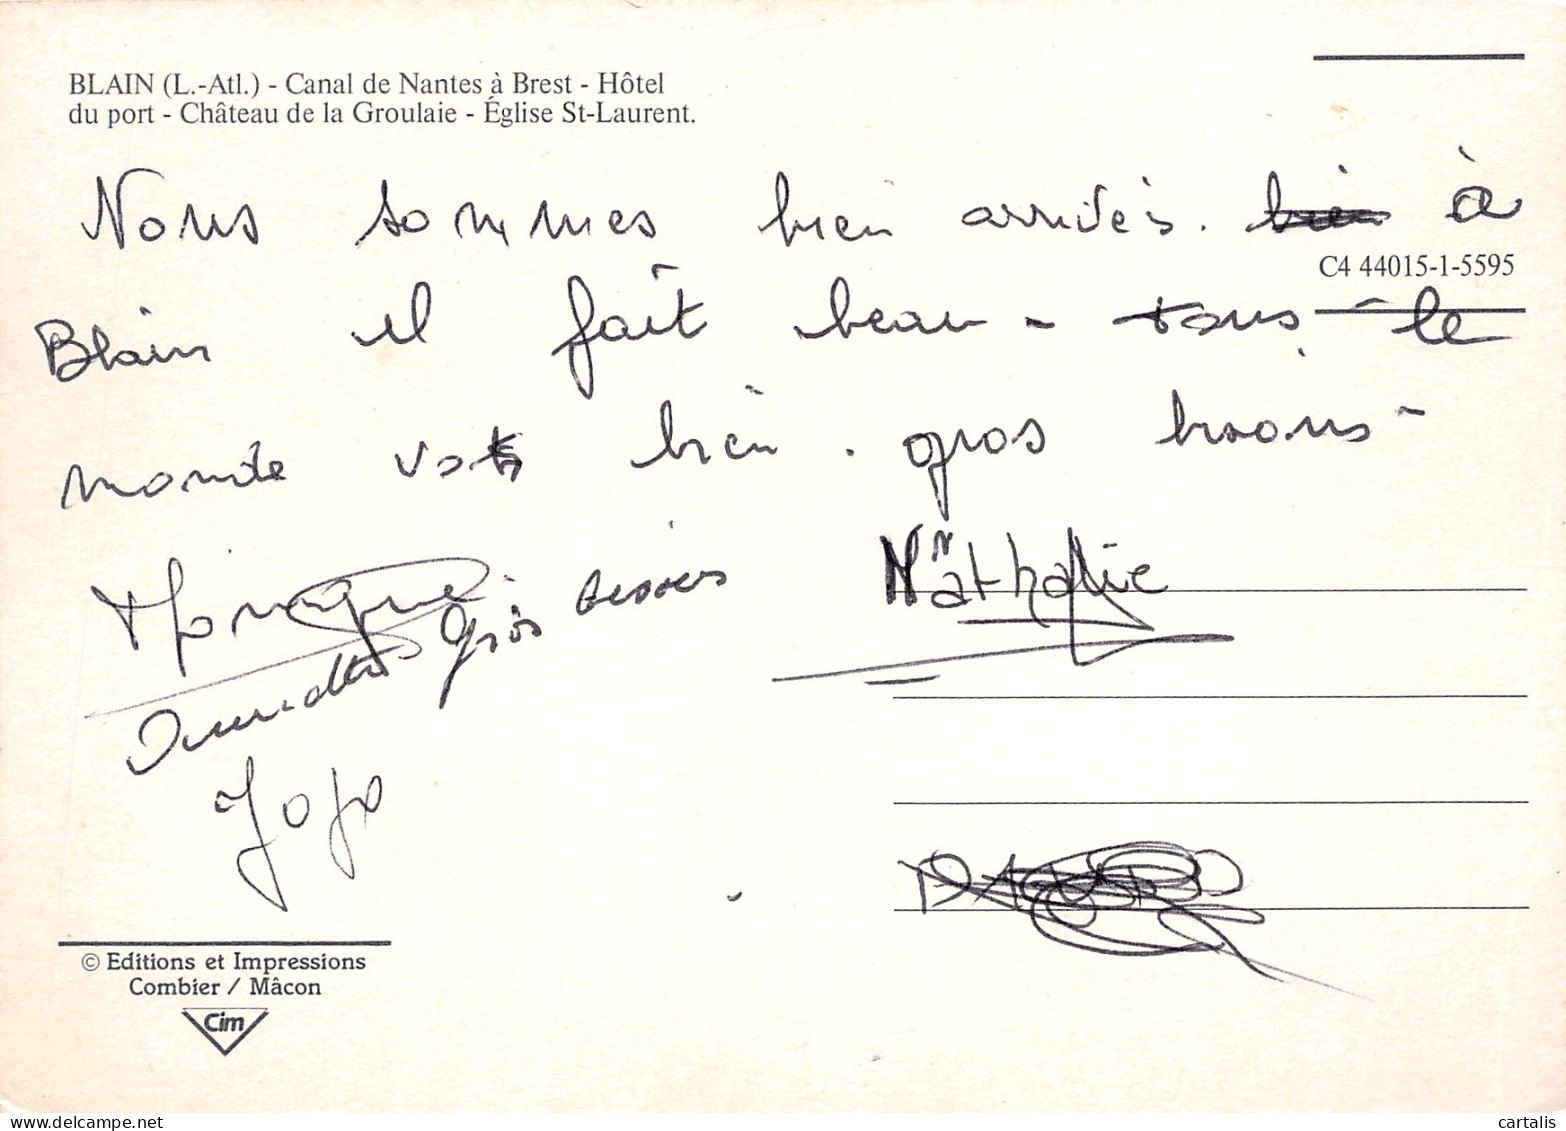 BLAIN (L.-Atl.) - Canal de Nantes à Brest - Hôtel
du port - Château de la Groulaie - Église St-Laurent.
Nous sommes bien arrivés. à
C4 44015-1-5595
Blain il fait beau - tous le
monde vo bien. gros bisous
Monique
Gros bisous
Nathalie
Jojo
© Editions et Impressions
Combier / Mâcon
Cim
delcampe.net
cartalis